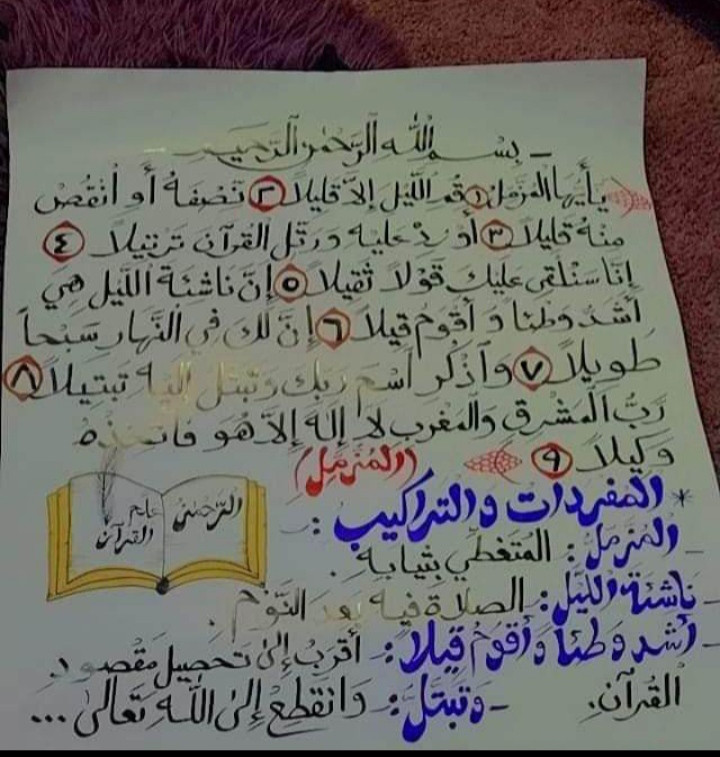 - بِسْمِ اللَّهِ الرَّحْمَٰنِ الرَّحِيمِ -
يأَيُّهَا الْمُزَّمِّلُ ١ قُمِ اللَّيْلَ إِلاَّ قَلِيلاً ٢ نِّصْفَهُ أَو اُنْقُصْ
مِنْهُ قَلِيلاً ٣ أَوْ زِدْ عَلَيْهِ وَرَتِّلِ الْقُرْآنَ تَرْتِيلاً ٤
إِنَّا سَنُلْقِي عَلَيْكَ قَوْلاً ثَقِيلاً ٥ إِنَّ نَاشِئَةَ اللَّيْلِ هِيَ
أَشَدُّ وَطْئًا وَأَقْوَمُ قِيلاً ٦ إِنَّ لَكَ فِي النَّهَارِ سَبْحاً
طَوِيلاً ٧ وَٱذْكُرِ ٱسْمَ رَبِّكَ وَتَبَتَّلْ إِلَيْهِ تَبْتِيلاً ٨
رَبُّ الْمَشْرِقِ وَالْمَغْرِبِ لاَ إِلَهَ إِلاَّ هُوَ فَاتَّخِذْهُ
وَكِيلاً ٩
(المُزَّمِّل)
* المفردات والتراكيب :
الرَّحْمَٰنُ
علم
القرآن
- المُزَّمِّلُ : المُتَغَطِّي بِثِيَابِهِ .
- نَاشِئَةَ اللَّيْلِ : الصلاة فيه بعد النَّوْمِ .
- أَشَدُّ وَطْئًا وَأَقْوَمُ قِيلاً : أَقْرَبُ إِلَى تَحْصِيلِ مَقْصُودِ
القُرآنِ. - وَتَبَتَّلْ : وَانْقَطِعْ إِلَىٰ اللَّهِ تَعَالَىٰ ...